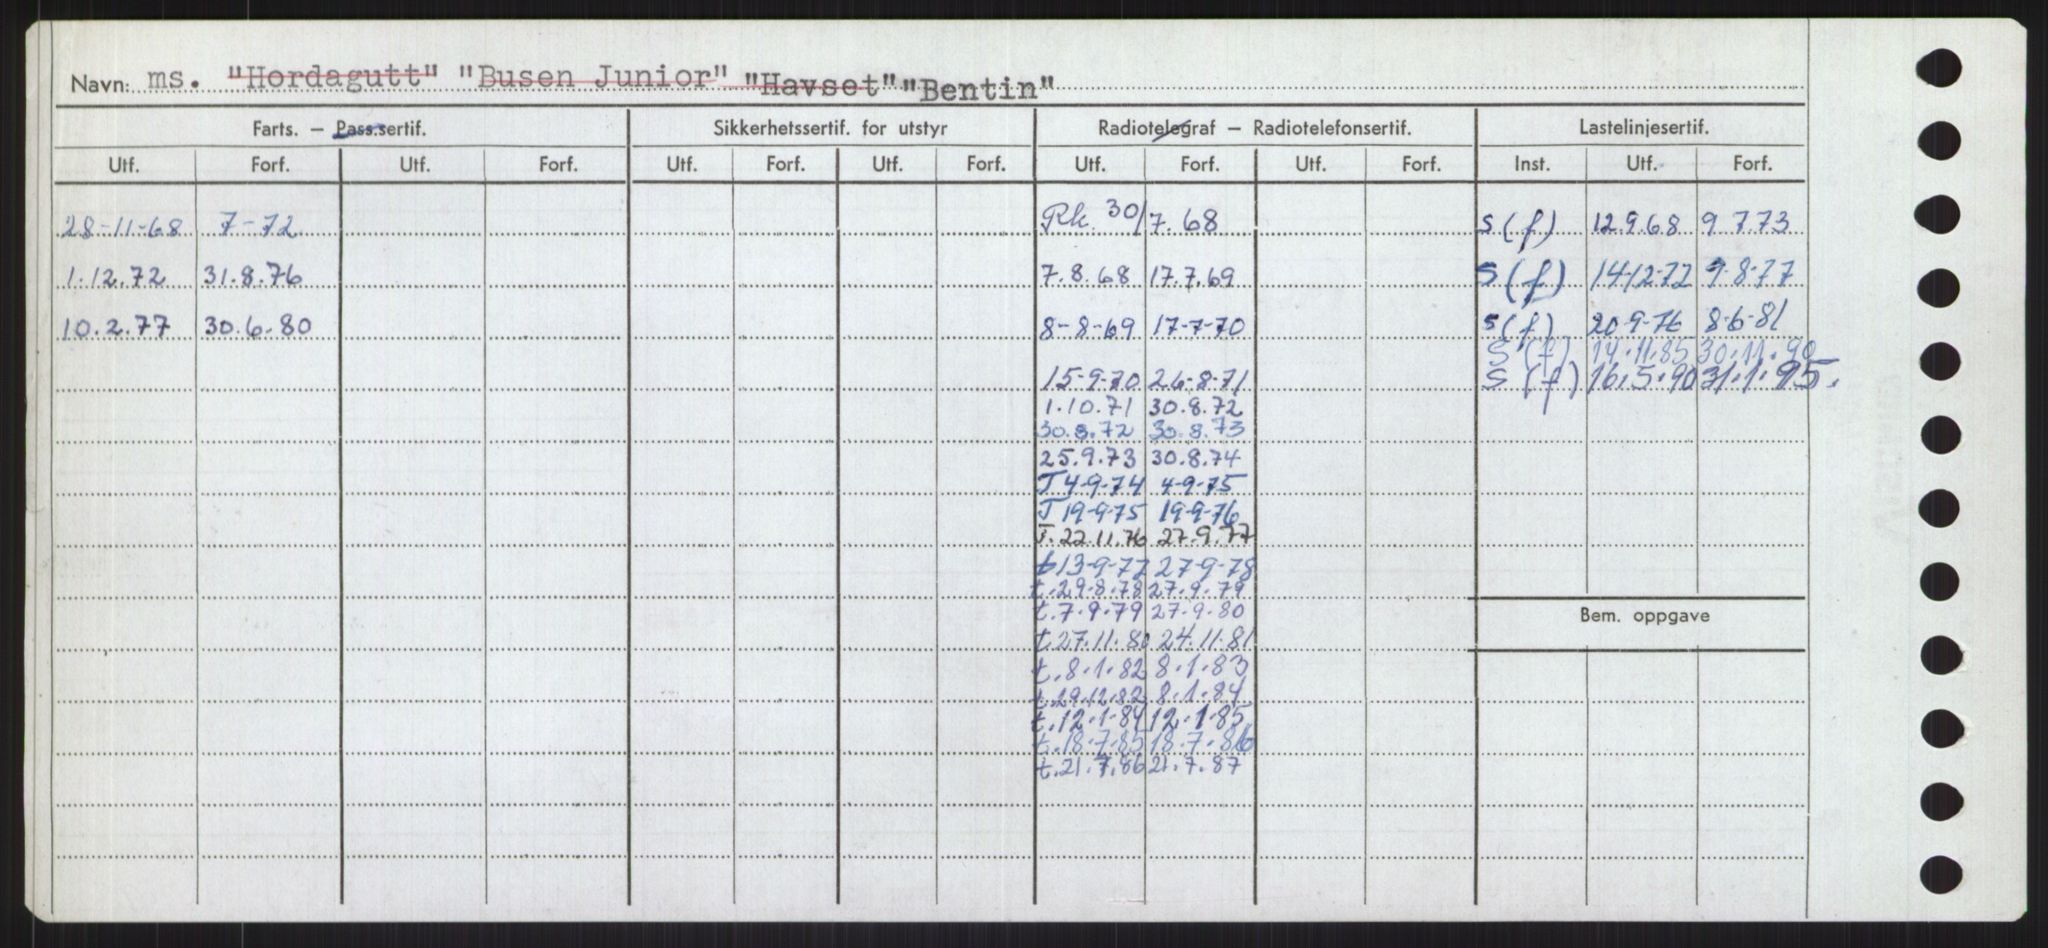 Navn: ms. "Hordagutt" "Busen Junior" "Havset" "Bentin"
Farts. — Pass.sertif. Sikkerhetssertif. for utstyr Radiotelegraf — Radiotelefonsertif. Lastelinjesertif.
Utf. Forf. Utf. Forf. Utf. Forf. Utf. Forf. Utf. Forf. Utf. Forf. Inst. Utf. Forf.
28-11-68 7-72 Rk. 30/7.68 S(f) 12.9.68 9.7.73
1.12.72 31.8.76 7.8.68 17.7.69 S(f) 14-12-72 9-8-77
10.2.77 30.6.80 8-8-69 17-7-70 S(f) 20-9-76 8-6-81
S(f) 14.11.85 30.11.90
15-9-70 26-8-71 S(f) 16.5.90 31.1.95.
1.10.71 30.8.72
30.8.72 30.8.73
25.9.73 30.8.74
T 4-9-74 4-9-75
T 19-9-75 19-9-76
T. 22.11.76 27.9.77
t 13-9-77 27-9-78
t. 29.8.78 27.9.79
t. 7.9.79 27.9.80
t. 27.11.80 24.11.81
t. 8.1.82 8.1.83
t. 29.12.82 8.1.84
t. 12.1.84 12.1.85
t. 18.7.85 18.7.86
t. 21.7.86 21.7.87
Bem. oppgave